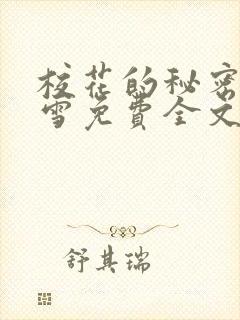 校花的秘密
雪免费全文
舒其瑞